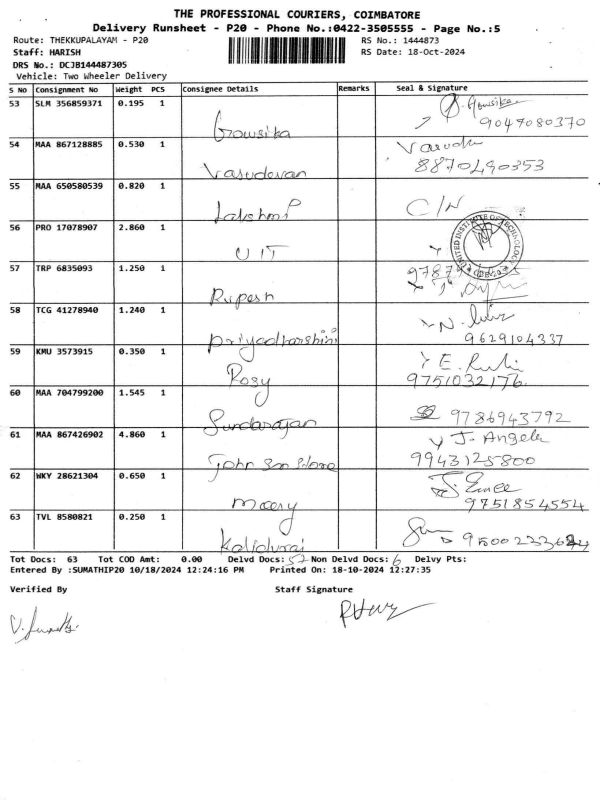 THE PROFESSIONAL COURIERS, COIMBATORE
Delivery Runsheet - P20 - Phone No.:0422-3505555 - Page No.:5
Route: THEKKUPALAYAM - P20 RS No.: 1444873
Staff: HARISH RS Date: 18-Oct-2024
DRS No.: DCJB144487305
Vehicle: Two Wheeler Delivery
S No Consignment No Weight PCS Consignee Details Remarks Seal & Signature
53 SLM 356859371 0.195 1 Gowsika
9047080370
54 MAA 867128885 0.530 1 Vasudevan
8870490353
55 MAA 650580539 0.820 1 Lakshmi C/N
56 PRO 17078907 2.860 1 UIT
UNITED INSTITUTE OF TECHNOLOGY
57 TRP 6835093 1.250 1 Rupesh
58 TCG 41278940 1.240 1 Priyadharshini
9629104337
59 KMU 3573915 0.350 1 Rosy
9751032176
60 MAA 704799200 1.545 1 Sundarajan 9786943792
61 MAA 867426902 4.860 1 J. Angela
9943125800
62 WKY 28621304 0.650 1
9751854554
63 TVL 8580821 0.250 1
Tot Docs: 63 Tot COD Amt: 0.00 Delvd Docs: 57 Non Delvd Docs: 6 Delvy Pts:
Entered By :SUMATHIP20 10/18/2024 12:24:16 PM Printed On: 18-10-2024 12:27:35
Verified By Staff Signature